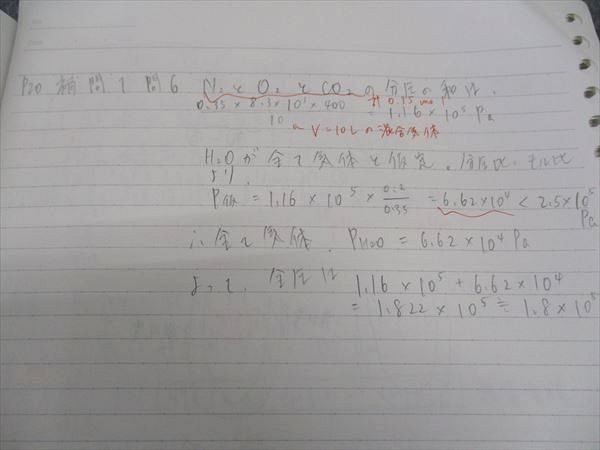 P20 補問1 問6 N₂とO₂とCO₂の分圧の和は、
計 0.35 mol
0.35 × 8.3×10³ × 400 / 10 = 1.16 × 10⁵ Pa
V=10Lの混合気体
H₂Oが全て気体と仮定。分圧比=モル比
より、
P仮 = 1.16 × 10⁵ × 0.2/0.35 = 6.62×10⁴ < 2.5×10⁵ Pa
∴全て気体、 PH₂O = 6.62 × 10⁴ Pa
よって、全圧は 1.16 × 10⁵ + 6.62 × 10⁴
= 1.822 × 10⁵ ≒ 1.8 × 10⁵